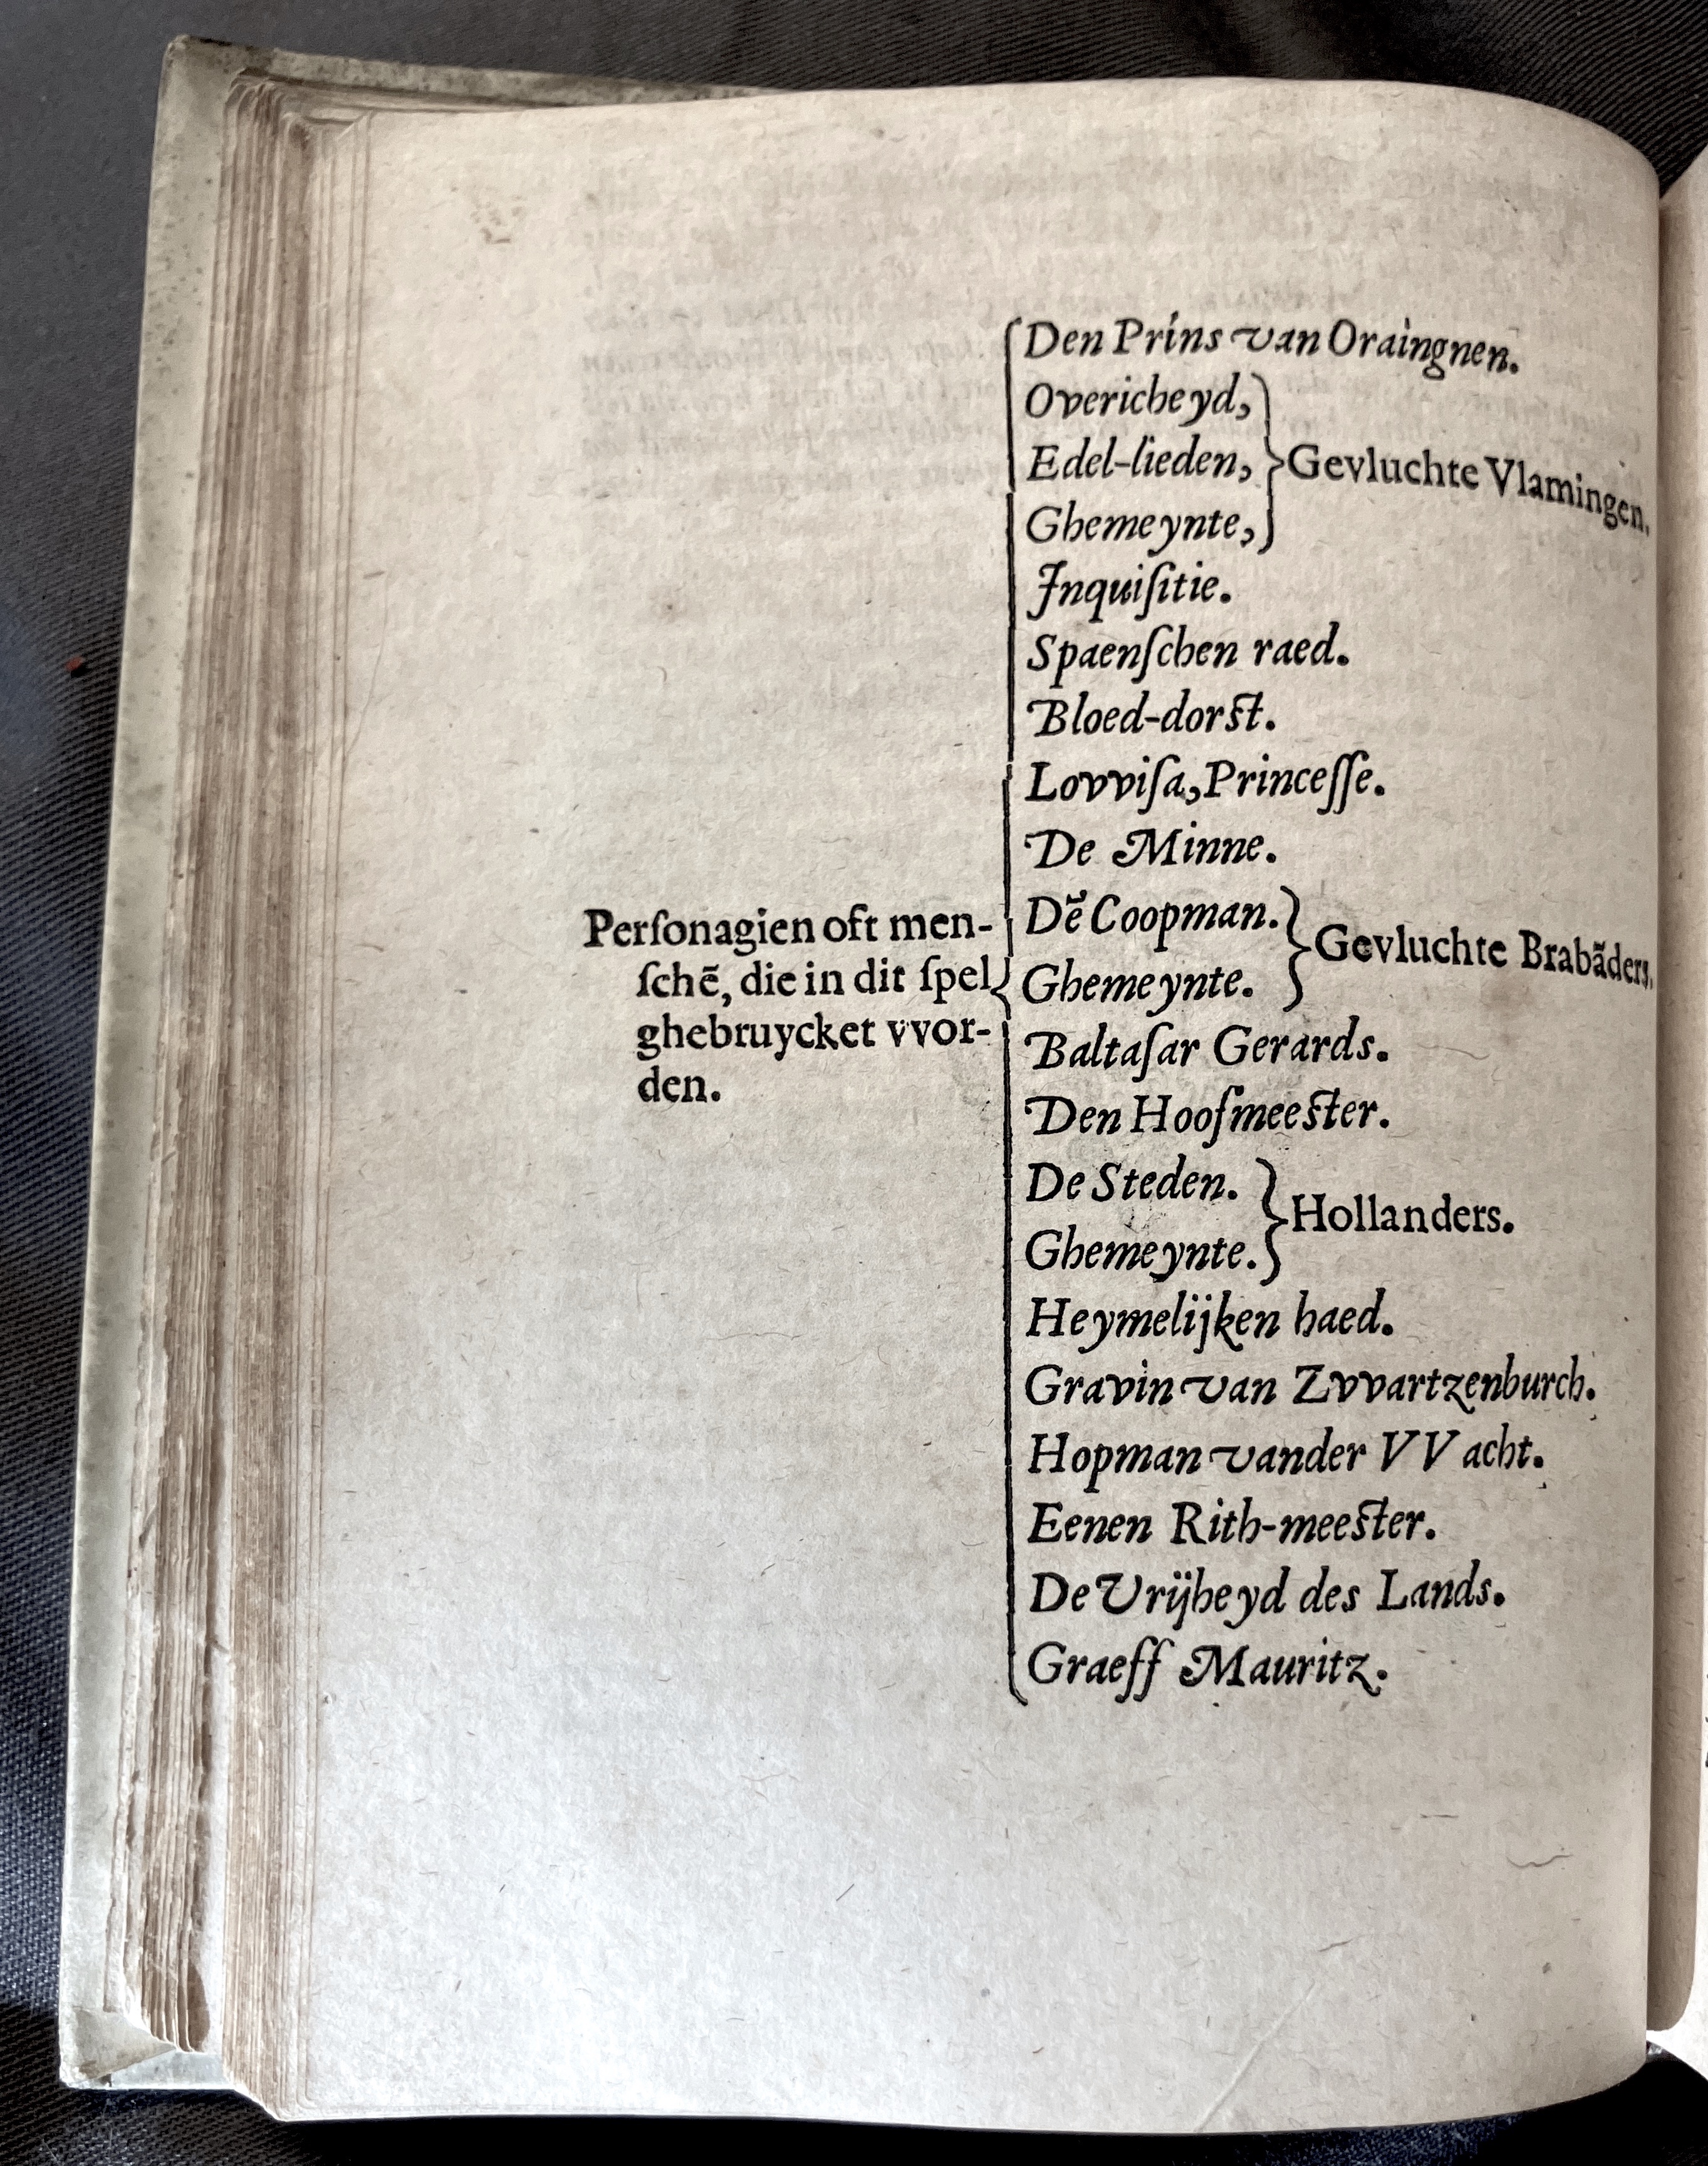 Perſonagien oft men-
ſchē, die in dit ſpel
ghebruycket vvor-
den.
Den Prins van Oraingnen.
Overicheyd,
Edel-lieden,
Ghemeynte,
Gevluchte Vlamingen.
Inquiſitie.
Spaenſchen raed.
Bloed-dorſt.
Lovviſa, Princeſſe.
De Minne.
Dē Coopman.
Ghemeynte.
Gevluchte Brabāders.
Baltaſar Gerards.
Den Hooſmeeſter.
De Steden.
Ghemeynte.
Hollanders.
Heymelijken haed.
Gravin van Zvvartzenburch.
Hopman vander VVacht.
Eenen Rith-meeſter.
De Vrijheyd des Lands.
Graeff Mauritz.